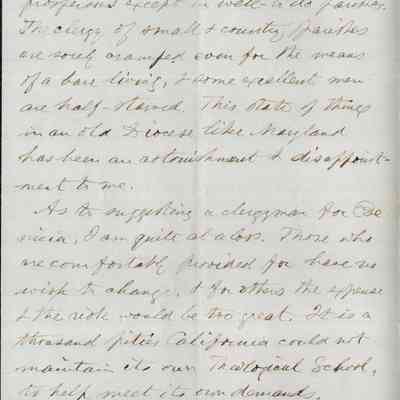 prosperous except in well-to-do parishes.
The clergy of small & country Parishes
are sorely cramped even for the means
of a bare living, & some excellent men
are half-starved. This state of things
in an old Diocese like Maryland
has been an astonishment & disappoint-
ment to me.
As to suggesting a clergyman for Be
nicia, I am quite at a loss. Those who
are comfortably provided for have no
wish to change, & for others the expense
& the risk would be too great. It is a
thousand pities California could not
maintain its own Theological School,
to help meet its own demands.